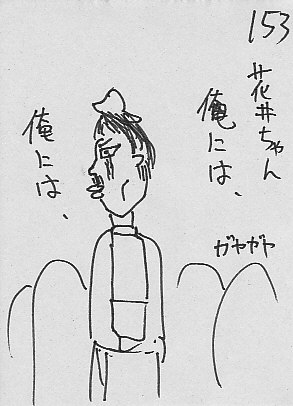 153
花井ちゃん
俺には、
ガヤガヤ
俺には、